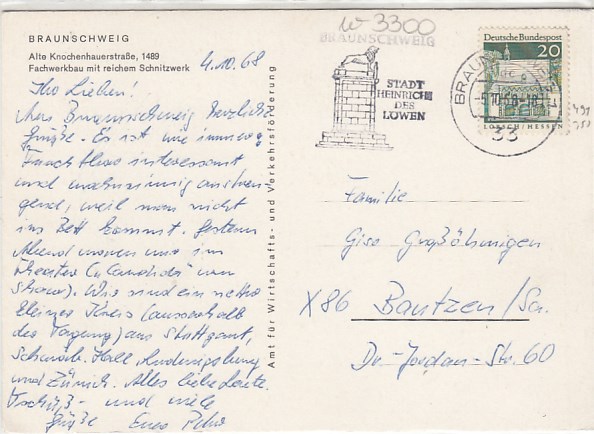 w-3300
BRAUNSCHWEIG
BRAUNSCHWEIG
Alte Knochenhauerstraße, 1489
Fachwerkbau mit reichem Schnitzwerk
4.10.68
Ihr Lieben!
Aus Braunschweig herzliche
Grüße. Es ist wie immer
furchtbar interessant
und wahnsinnig anstren-
gend, weil man nicht
ins Bett kommt. Gestern
Abend waren wir im
Theater
Strauss). Wir sind ein netter
kleiner Kreis (ausserhalb
der Tagung) aus Stuttgart,
Schwäb. Hall, Ludwigsburg
und Zürich. Alles liebe Leute.
Tschüß - und viele
Grüße Euer
Amt für Wirtschafts- und Verkehrsförderung
STADT
HEINRICHS
DES
LÖWEN
Deutsche Bundespost
20
LORSCH/HESSEN
BRAUNSCHWEIG
33
Familie
Großöhmigen
X86 Bautzen/Sa.
Dr.-Jordan-Str. 60